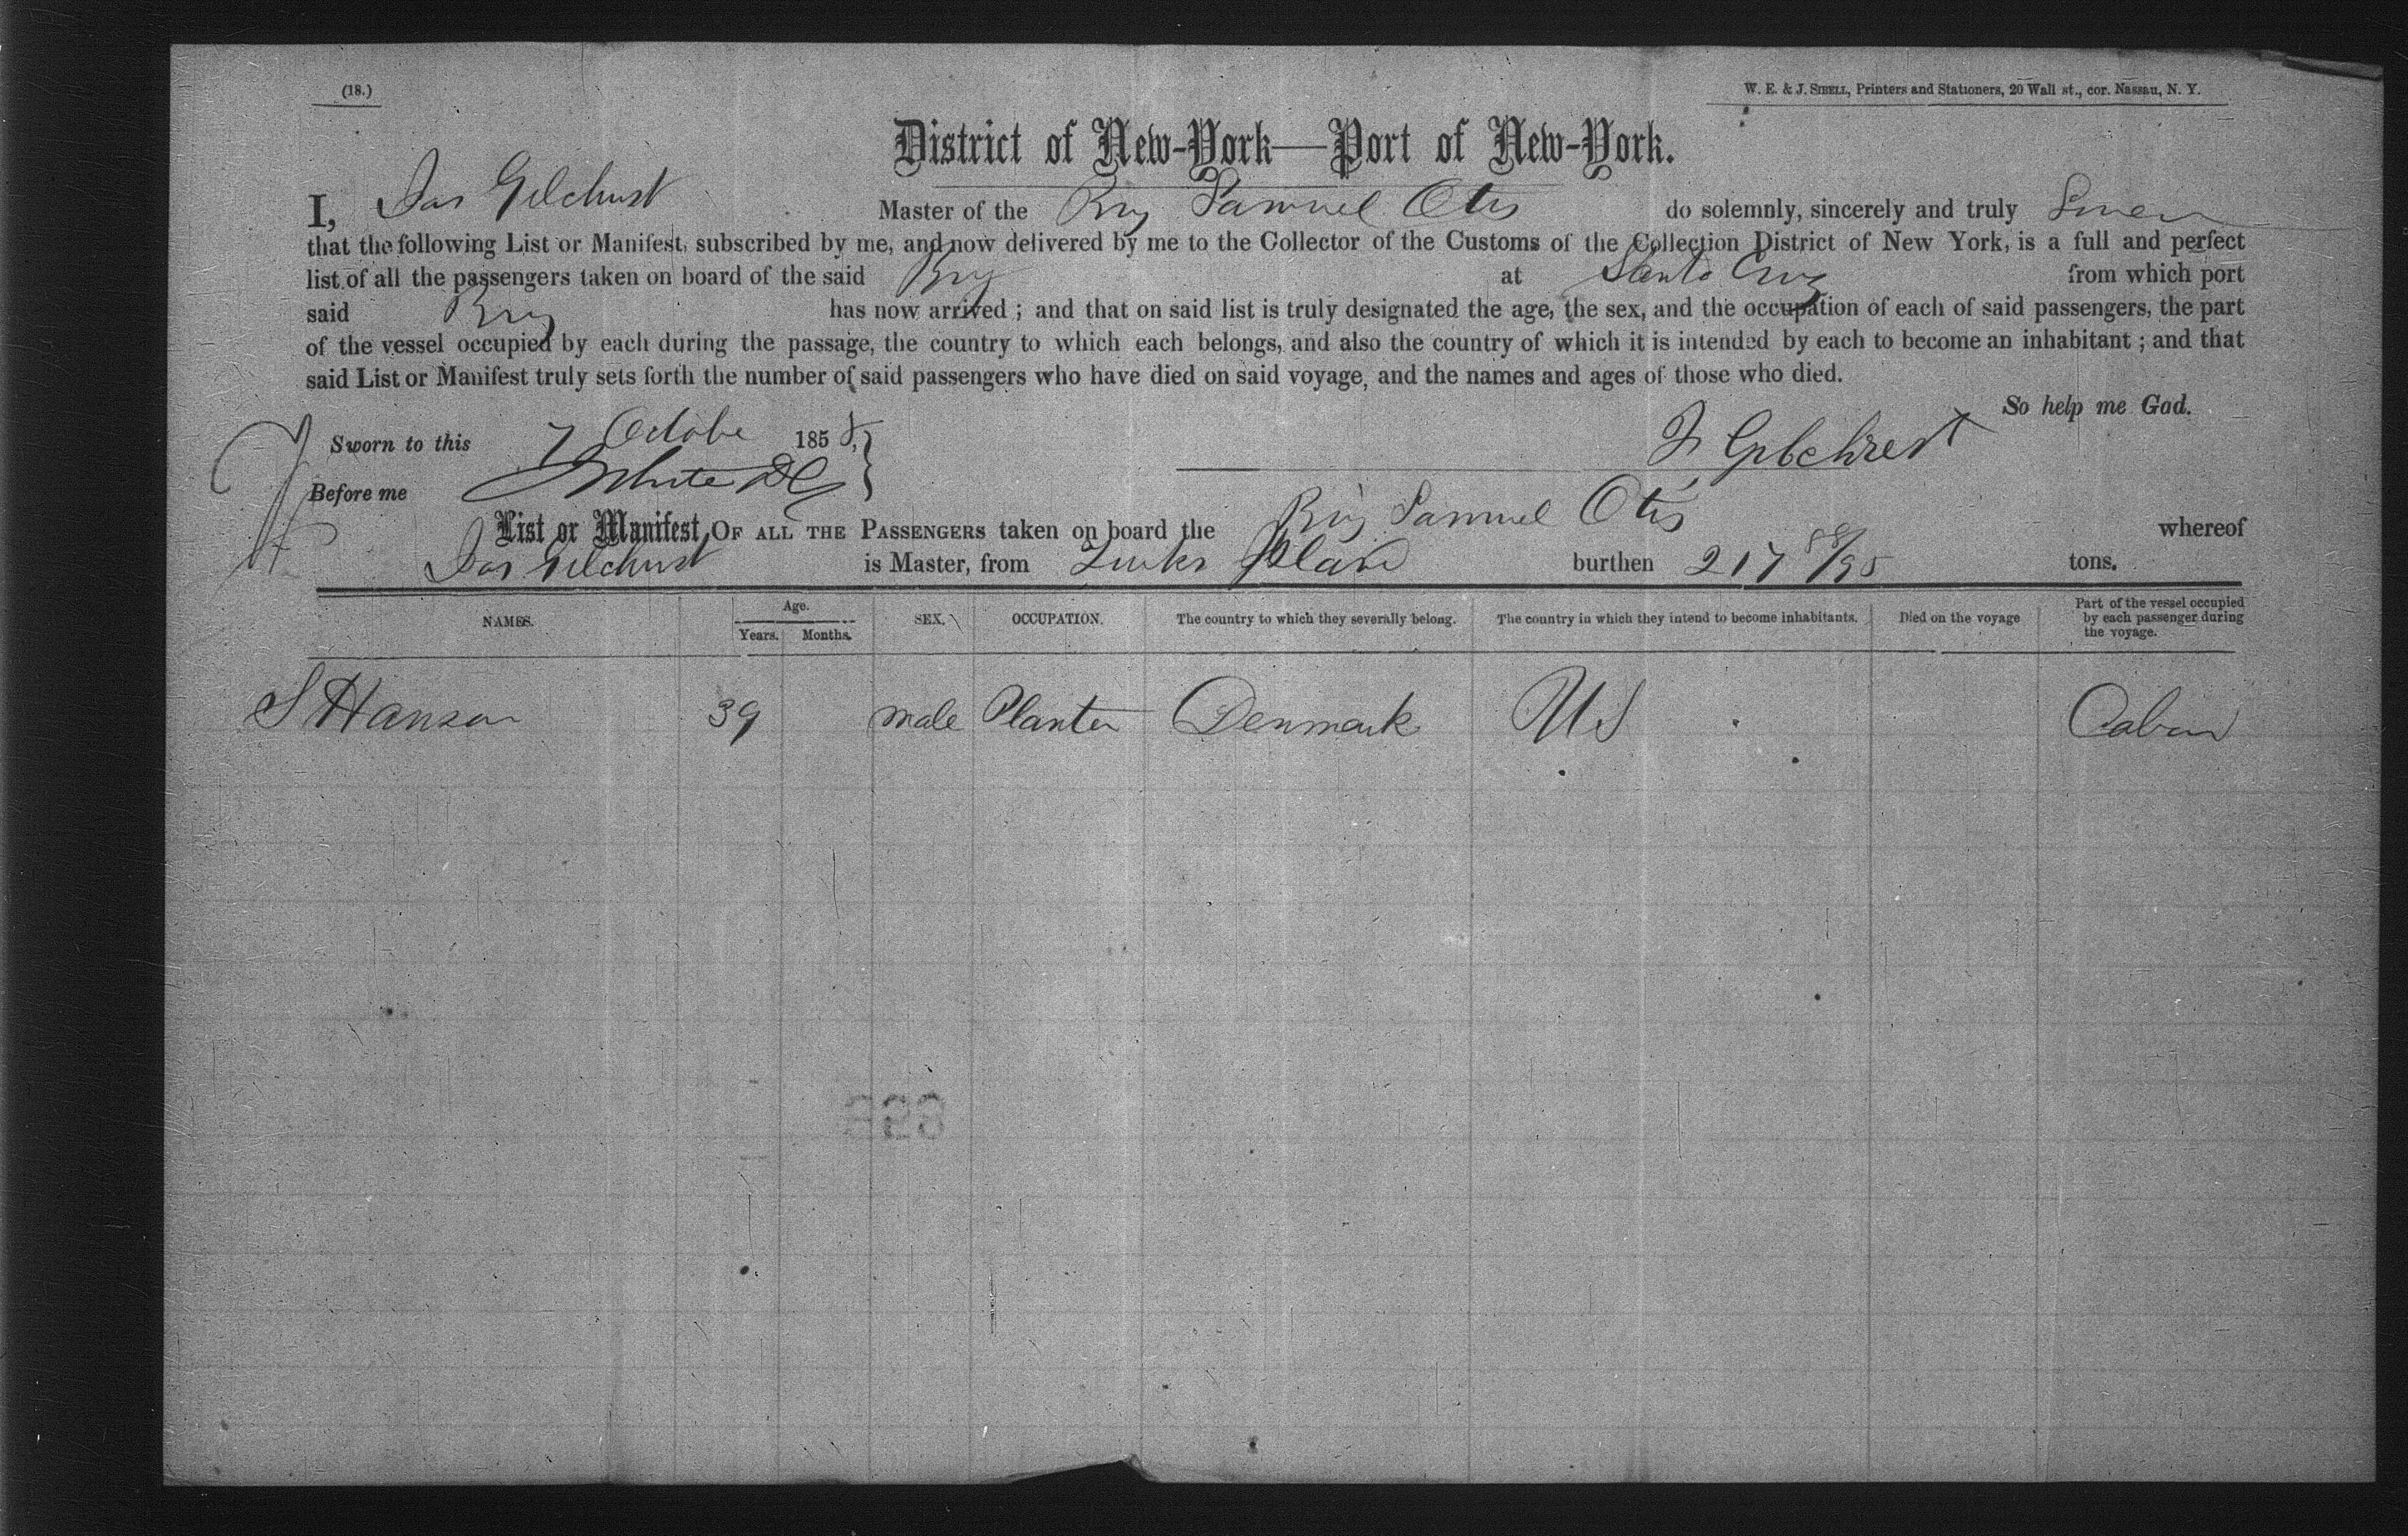 (18.)
W. E. & J. SIBELL, Printers and Stationers, 20 Wall st., cor. Nassau, N. Y.
District of New-York—Port of New-York.
I, Jas Gilchrist Master of the Brig Samuel Otis do solemnly, sincerely and truly Swear
that the following List or Manifest, subscribed by me, and now delivered by me to the Collector of the Customs of the Collection District of New York, is a full and perfect
list of all the passengers taken on board of the said Brig at Santa Cruz from which port
said Brig has now arrived ; and that on said list is truly designated the age, the sex, and the occupation of each of said passengers, the part
of the vessel occupied by each during the passage, the country to which each belongs, and also the country of which it is intended by each to become an inhabitant ; and that
said List or Manifest truly sets forth the number of said passengers who have died on said voyage, and the names and ages of those who died.
So help me God.
Sworn to this 7 October 1858,
J Gilchrest
Before me White
List or Manifest OF ALL THE PASSENGERS taken on board the Brig Samuel Otis whereof
Jas Gilchrist is Master, from Turks Island burthen 217 88/95 tons.
NAMES. Age. Years. Months. SEX. OCCUPATION. The country to which they severally belong. The country in which they intend to become inhabitants. Died on the voyage Part of the vessel occupied by each passenger during the voyage.
S Hanson 39 male Planter Denmark US Cabin